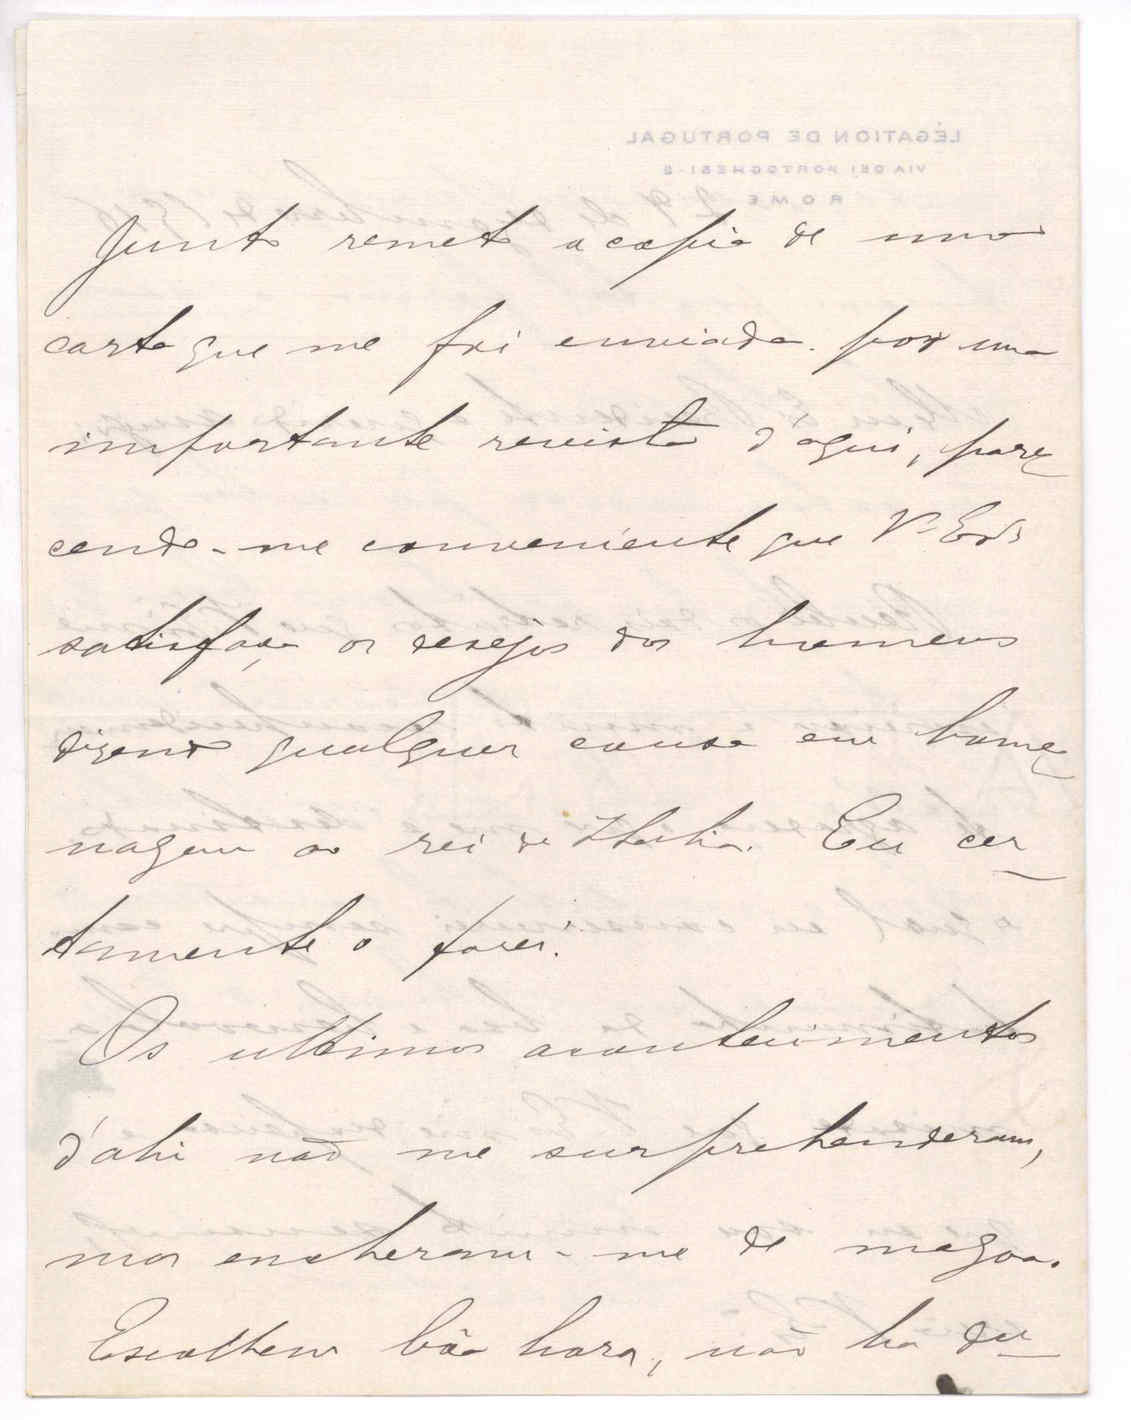 Junto remeto a copia de uma
carta que me foi enviada por uma
importante revista d'aqui, pare
cendo-me conveniente que V. Exª
satisfaça os desejos dos homens
dizendo qualquer cousa em home
nagem ao rei de Italia. Eu cer
tamente o farei.
Os ultimos acontecimentos
d'ahi não me surprehenderam,
mas encheram-me de magoa.
Escolhem bôa hora, não ha du
LÉGATION DE PORTUGAL
VIA DEI PORTOGHESI
ROME